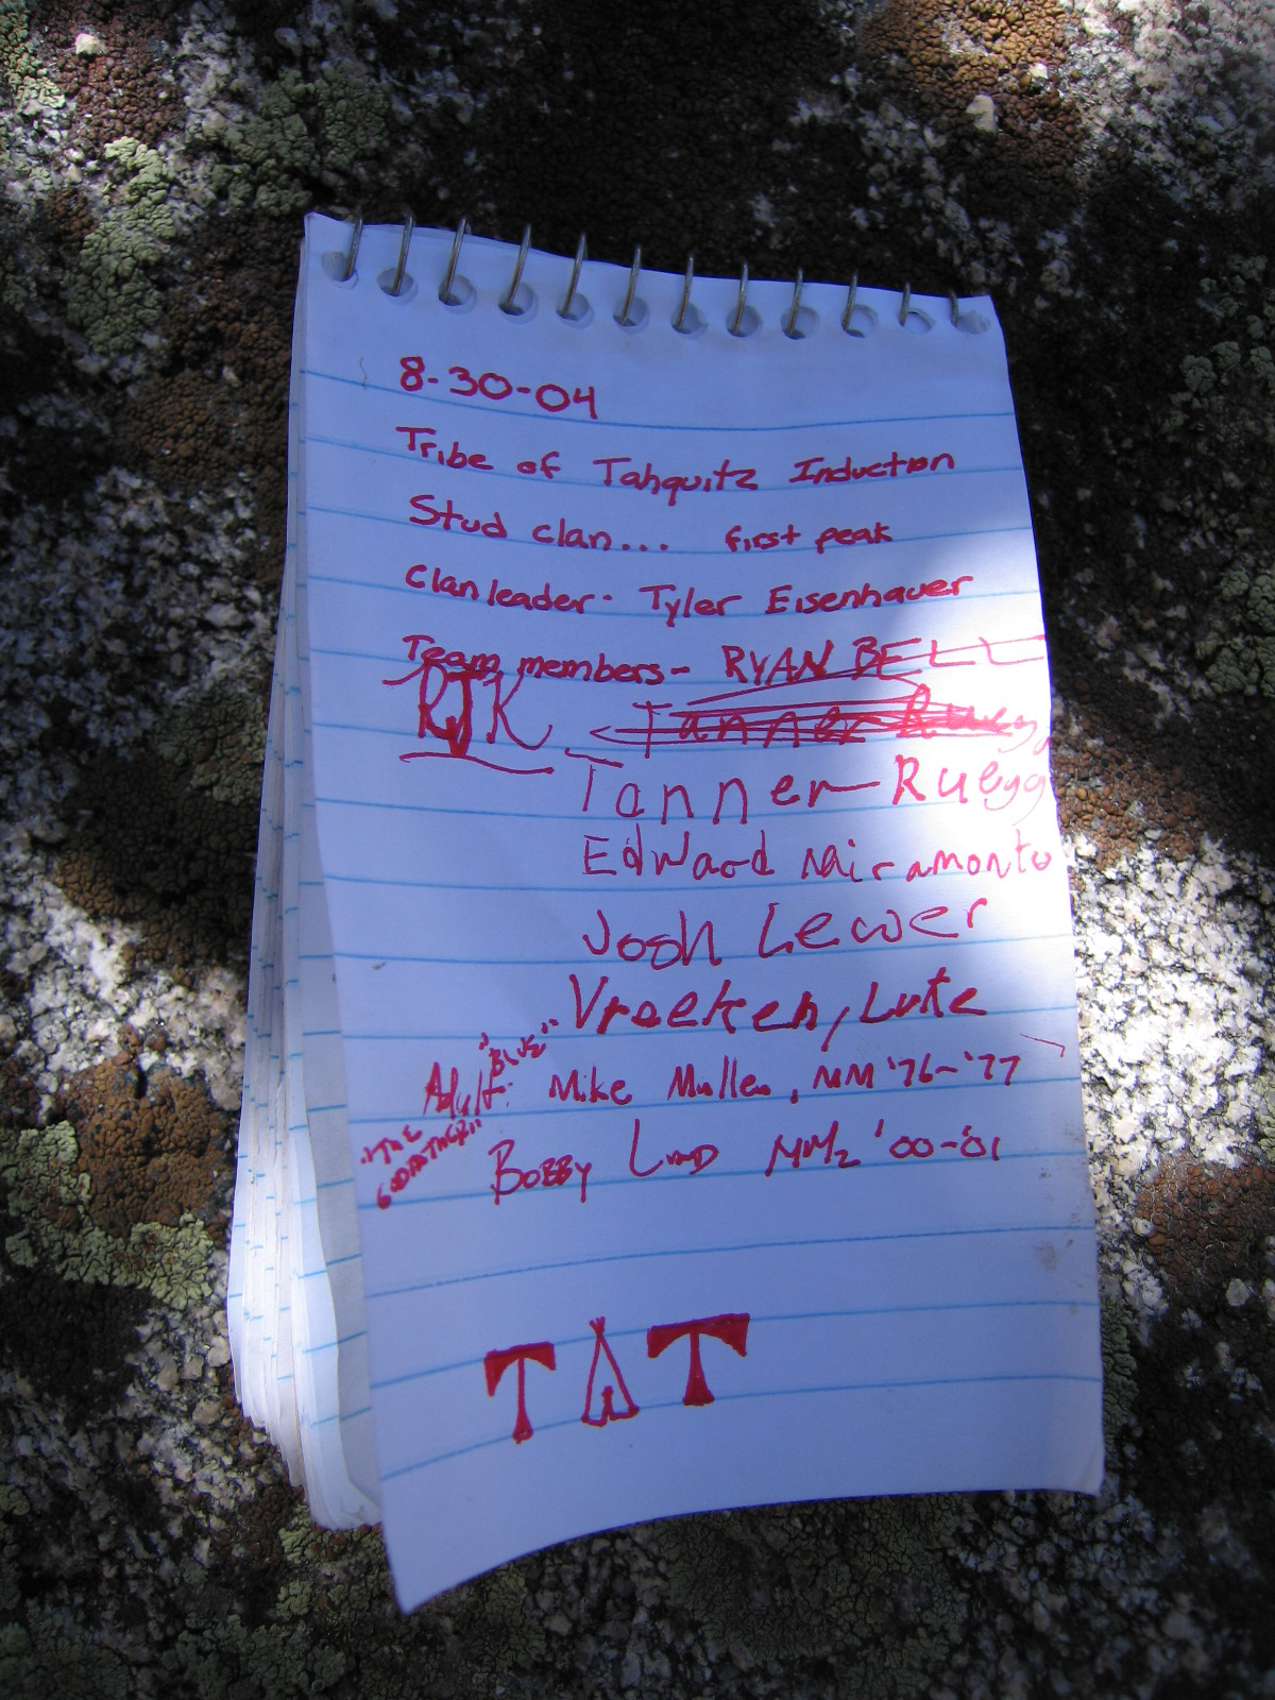 8-30-04
Tribe of Tahquitz Induction
Stud clan... first peak
Clan leader- Tyler Eisenhauer
Team members- RYAN BELL
RJK Tanner Ruegg
Tanner Ruegg
Edward
Josh Lewer
Vroeken, Luke
Adult: "BLUE" Mike Mullen, MM '76-'77
"THE GODFATHER" BOBBY LIND MM2 '00-'01
TAT